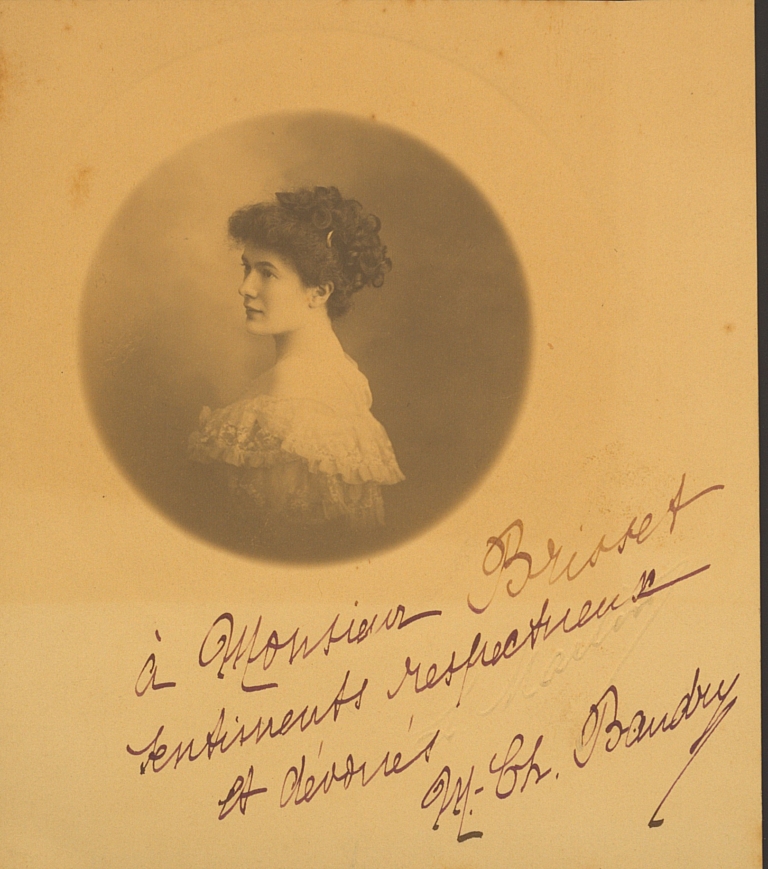 à Monsieur Brisset
sentiments respectueux
et dévoués
M. Ch. Baudry